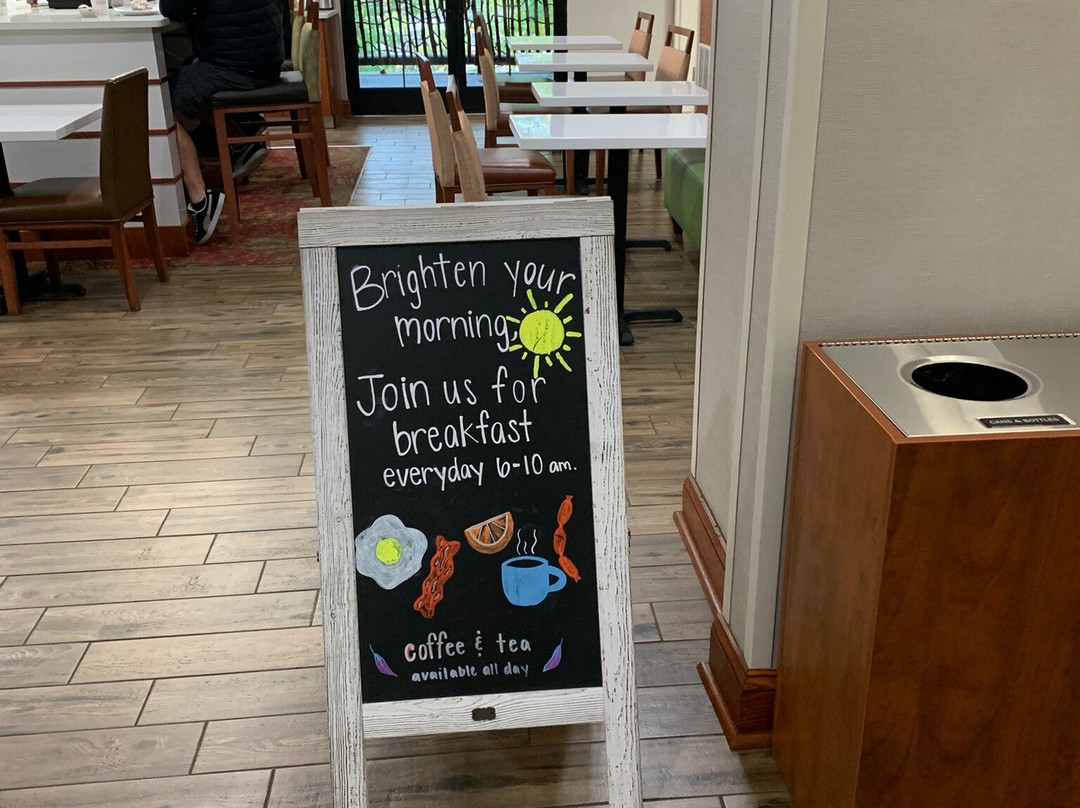 Brighten your
morning,
Join us for
breakfast
everyday 6-10 am.
coffee & tea
available all day
CANS & BOTTLES